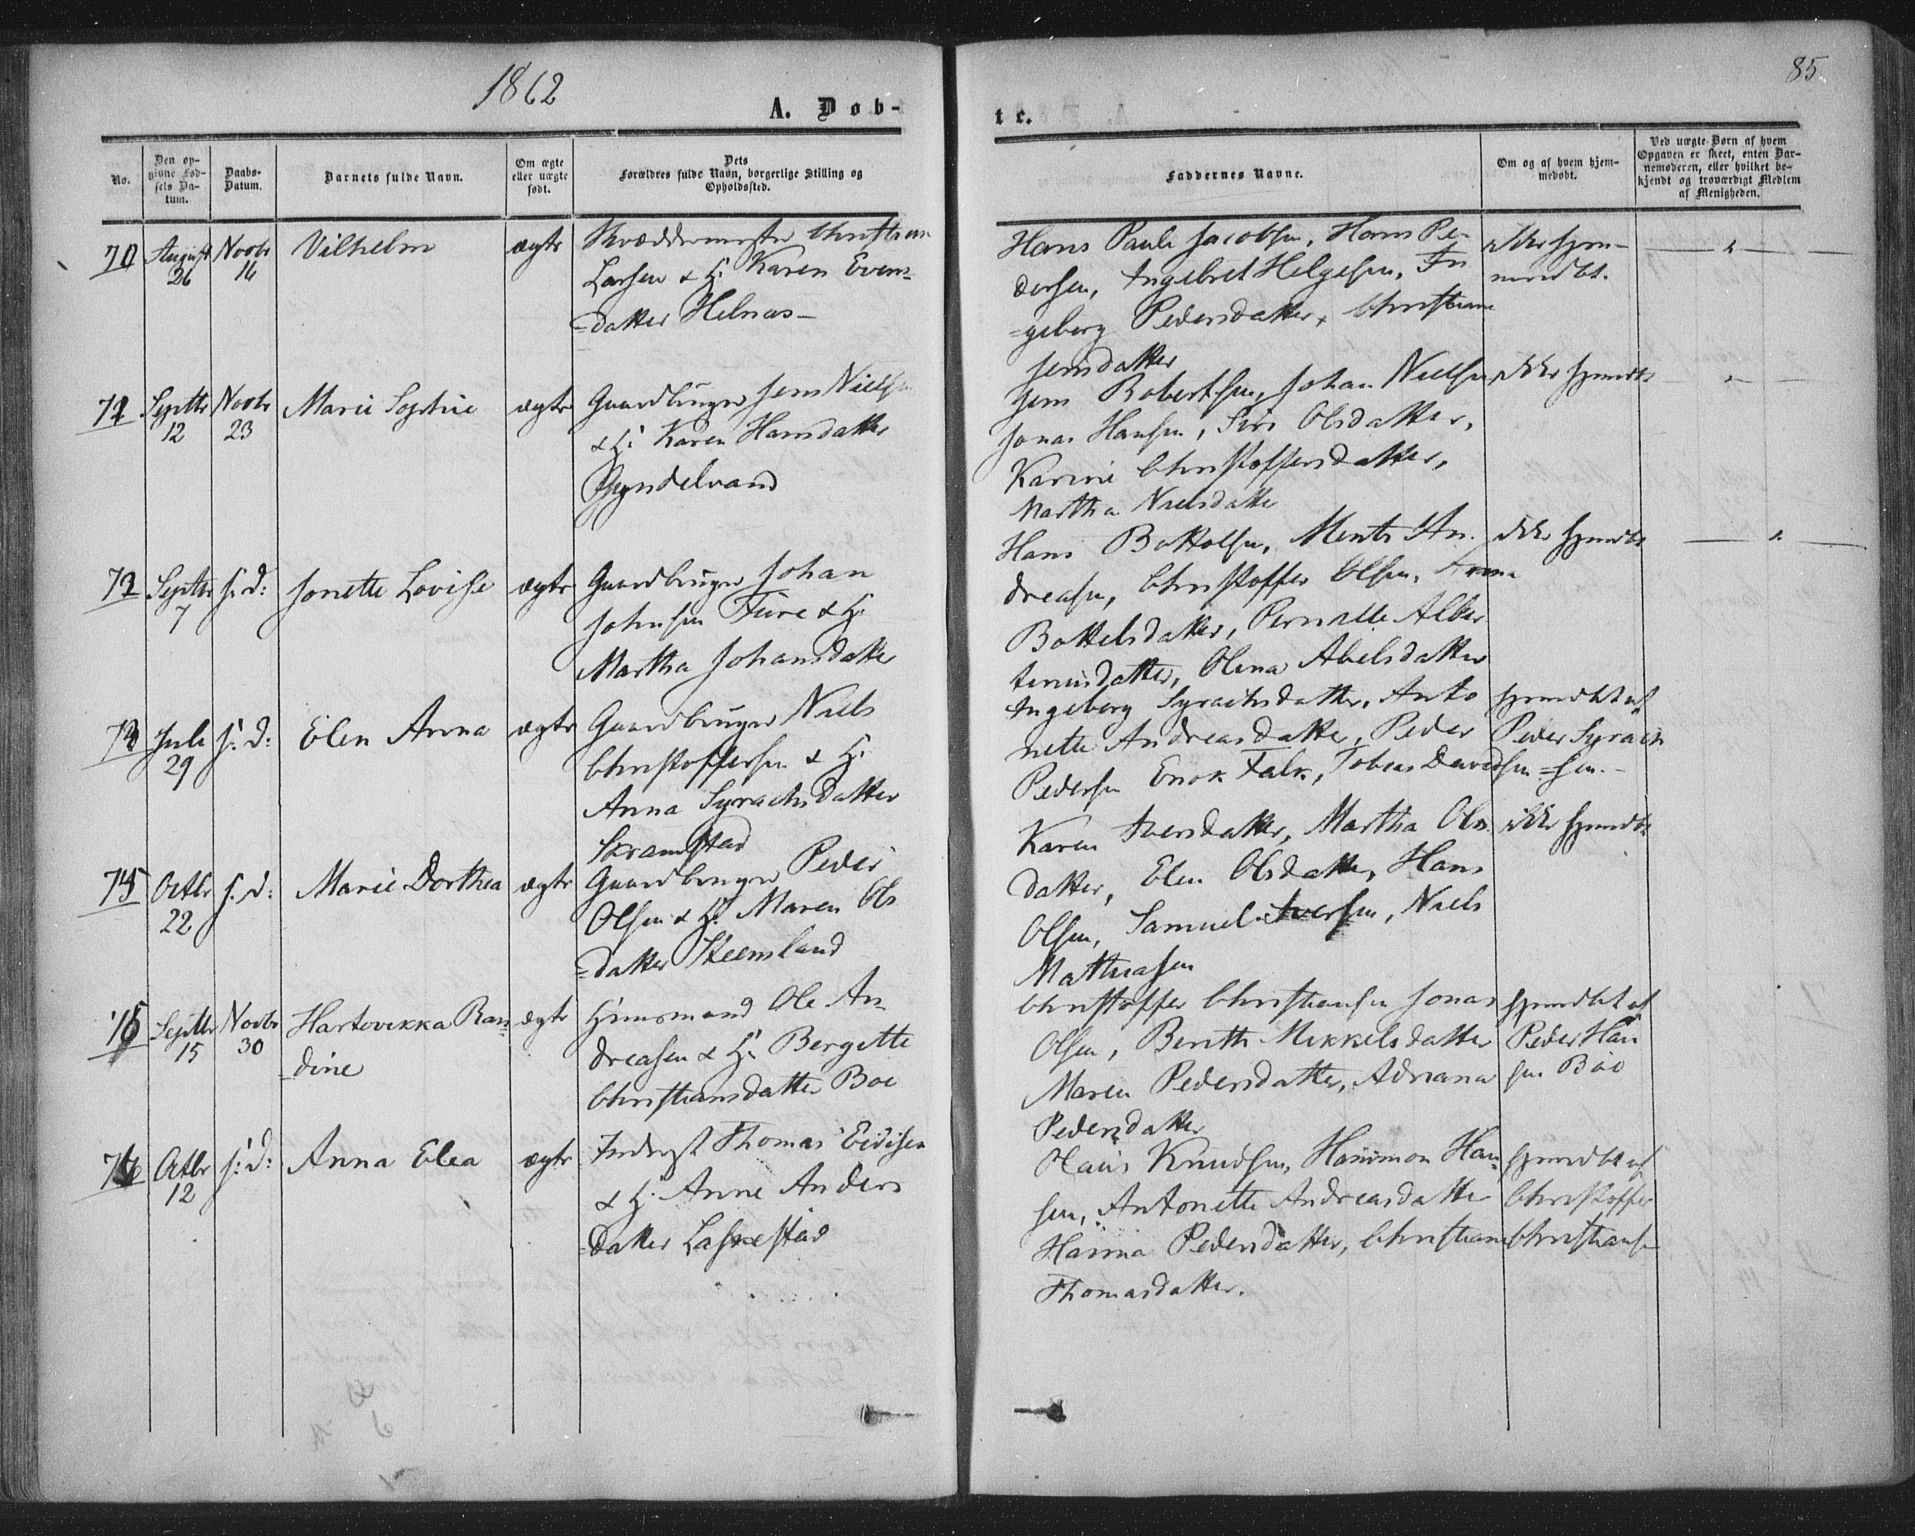 1862
85
A. Døb-
te.
No.
Den op-
givne Fød-
sels Da-
tum.
Daabs-
Datum.
Barnets fulde Navn.
Om ægte
eller uægte
født.
Dets
Forældres fulde Navn, borgerlige Stilling og
Opholdssted.
Faddernes Navne.
Om og af hvem hjem-
medøbt.
Ved uægte Børn af hvem
Opgaven er skeet, enten Bar-
nemoderen, eller hvilket be-
kjendt og troværdigt Medlem
af Menigheden.
70
August
26
Novbr
16
Vilhelm
ægte
Skræddermester Christian
Larsen & H. Karen Evens-
=datter Helnæs-
Hans Paul Jacobsen, Hans Pe-
dersen, Ingebret Helgesen, In
=geborg Pedersdatter, Christiane
Jensdatter
ikke hjem-
medbt.
71
Septbr
12
Novbr
23
Marie Sophie
ægte
Gaardbruger Jens Nielsen
& H. Karen Hansdatter
Jens Robertsen, Johan Nielsen
Jonas Hansen, Siri Olsdatter,
Karine Christoffersdatter,
Martha Nielsdatter
ikke hjmdbt
Septbr
7
s: d:
Jonette Lovise
ægte
Gaardbruger Johan
Johnsen Fure & H.
Martha Johansdatter
Hans Bottolsen, Ments An-
dreasen, Christoffer Olsen, Anna
Bottelsdatter, Pernille Alber
tinusdatter, Olena Abelsdatter
ikke hjmdbt
Juli
29
s: d:
Elen Anna
ægte
Gaardbruger Niels
Christoffersen & H.
Anna Syrachsdatter
Skramstad
Ingeborg Syrachsdatter, Anto
nette Andreasdatter, Peder
Pedersen Enok Falk, Tobias Davidsen
hjmdbt af
Peder Syrach
=sen.-
75
Octbr
22
s: d:
Marie Dorthea
ægte
Gaardbruger Peder
Olsen & H. Maren Ols
=datter Steensland
Karen Iversdatter, Martha Ols
datter, Elen Olsdatter, Hans
Olsen, Samuel Iversen, Niels
Mathiasen
ikke hjmdbt
Septbr
15
Novbr
30
Hartvikka Ran-
=dine
ægte
Huusmand Ole An-
dreasen & H. Bergitte
Christiansdatter Boe
Christoffer Christiansen Jonas
Olsen, Berith Mikkelsdatter
Maren Pedersdatter, Adriana
Pedersdatter
hjmdbt af
Peder Han
sen Böe
Octbr
12
s: d:
Anna Elea
ægte
Inderst Thomas Eidisen
& H. Anne Anders
=datter Laskestad
Olaus Knudsen, Hansmon Han-
sen, Antonette Andreasdatter
Hanna Pedersdatter, Christiane
Thomasdatter.
hjmdbt af
Christoffer
Christians-